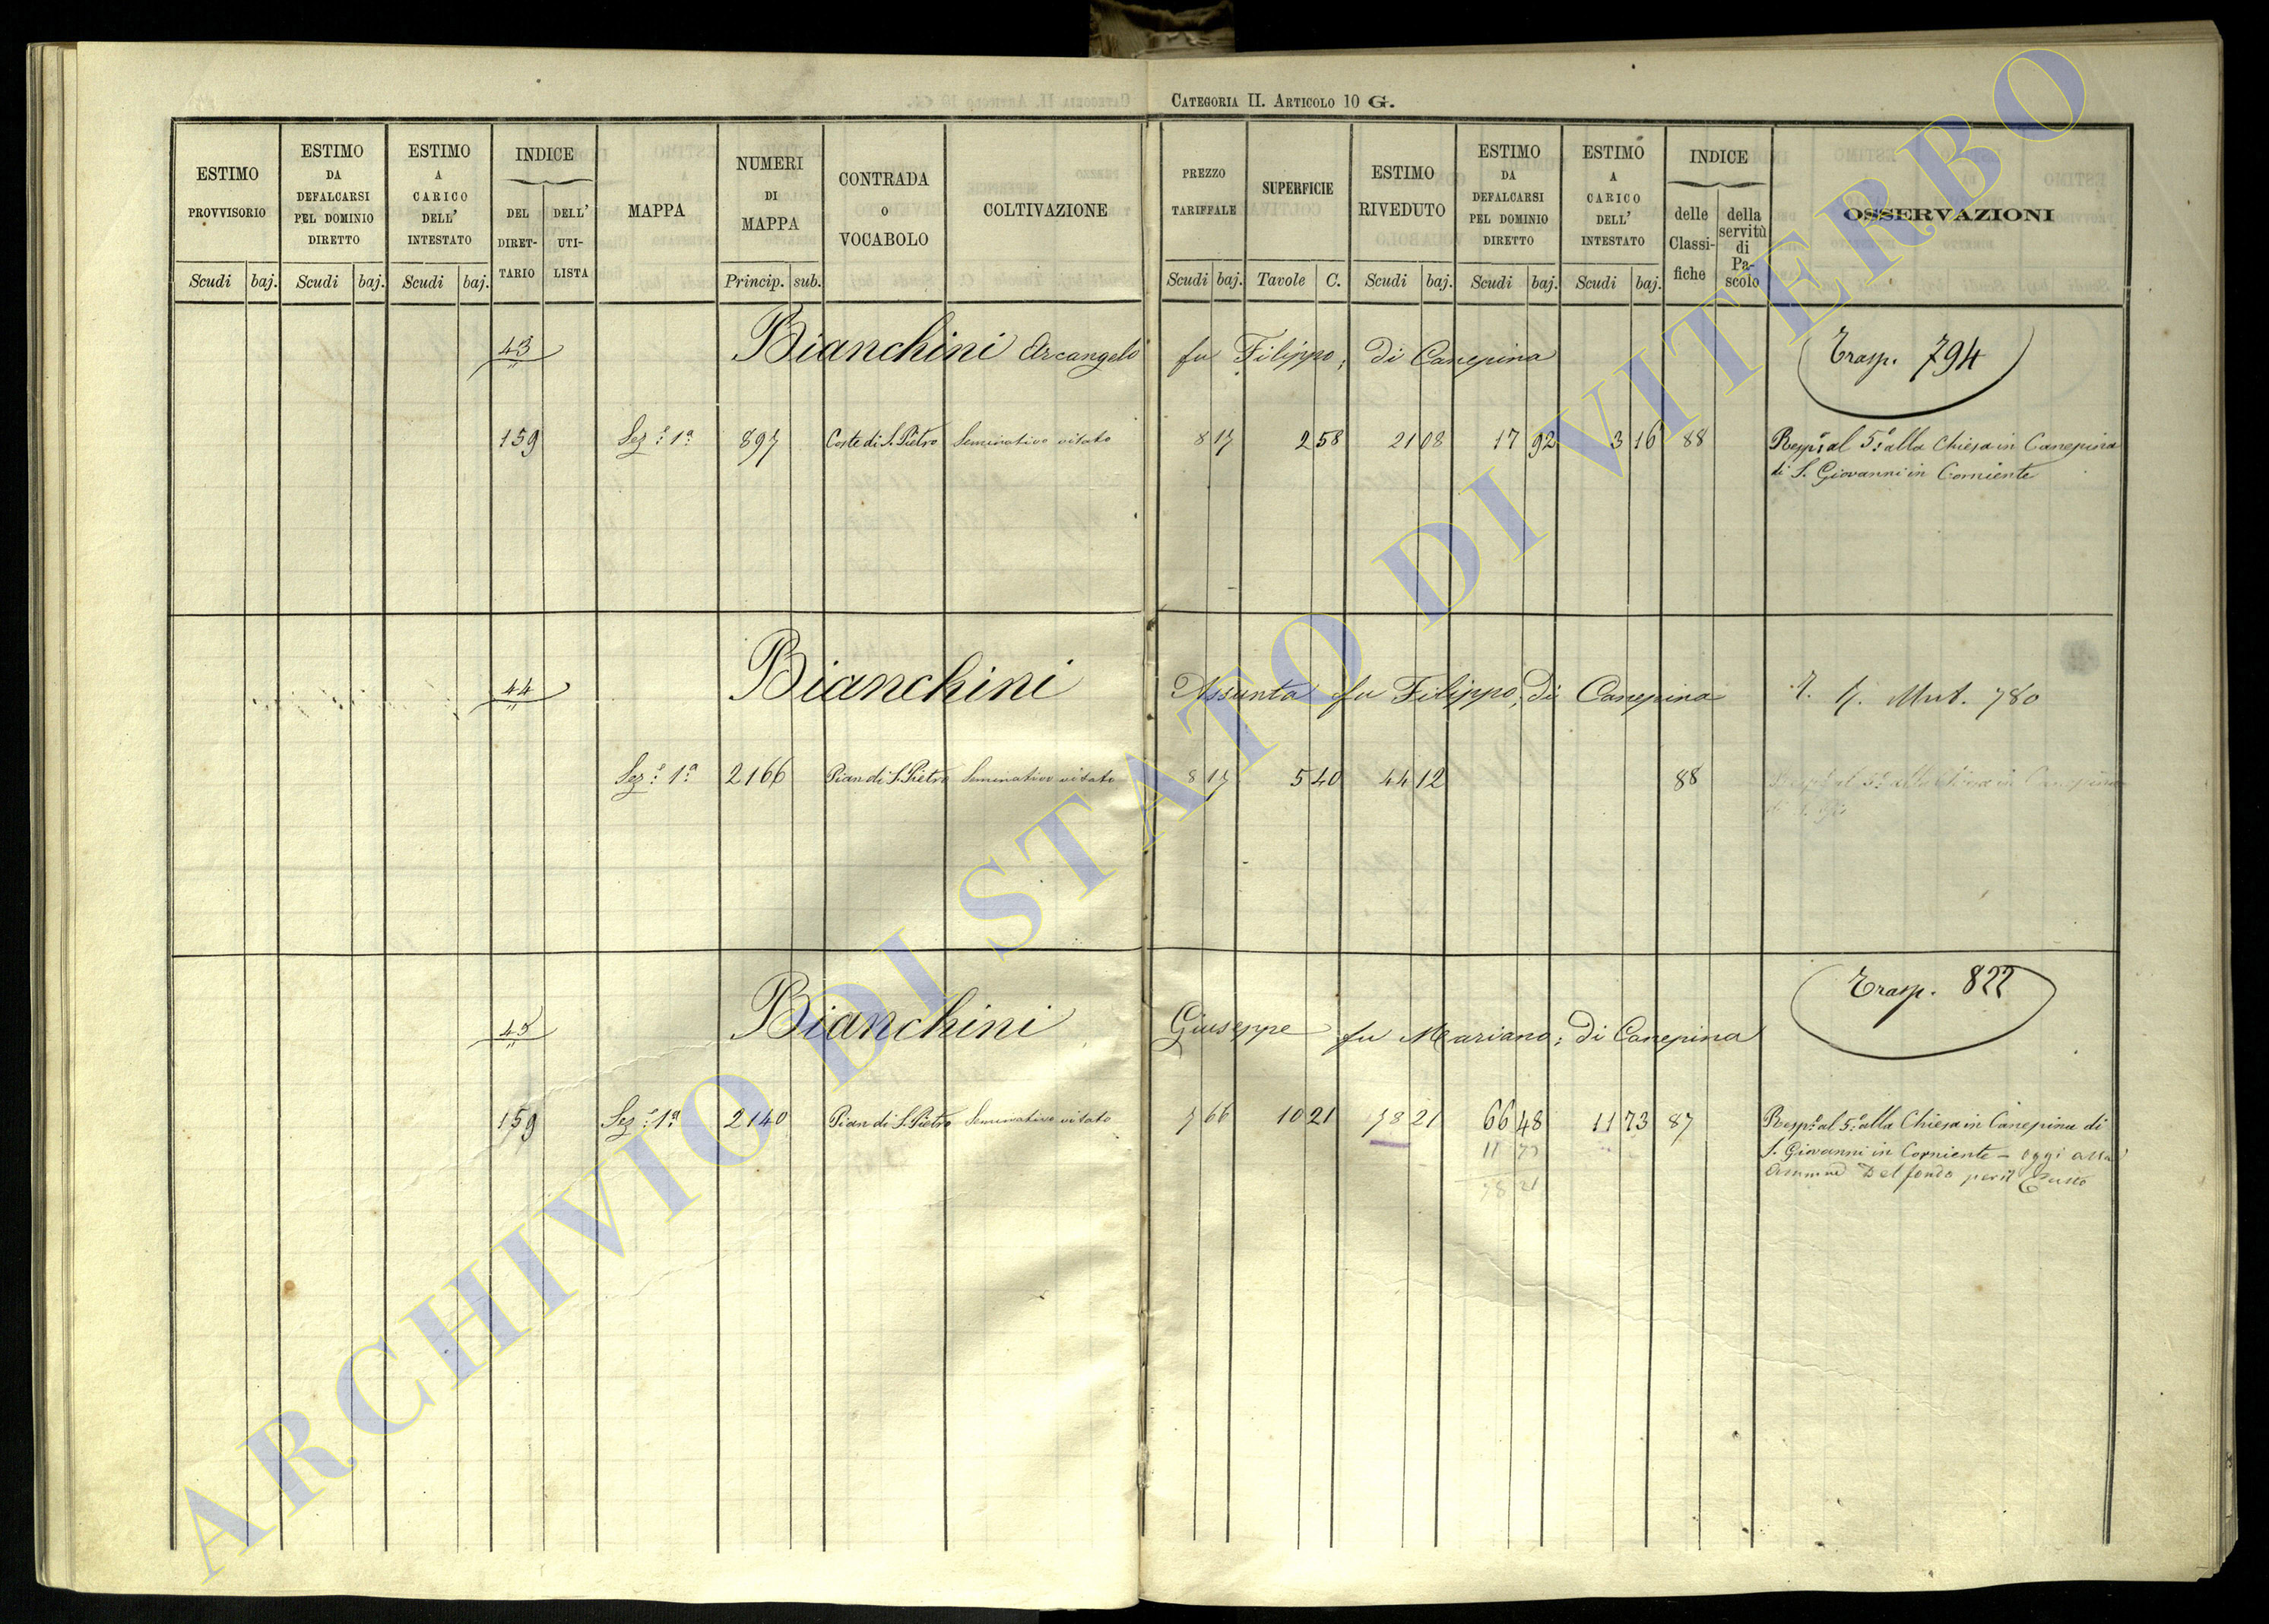 CATEGORIA II. ARTICOLO 10 G.
ESTIMO PROVVISORIO Scudi baj.
ESTIMO DA DEFALCARSI PEL DOMINIO DIRETTO Scudi baj.
ESTIMO A CARICO DELL' INTESTATO Scudi baj.
INDICE
DEL DIRETTARIO
DELL' UTILISTA
MAPPA
NUMERI DI MAPPA Princip. sub.
CONTRADA O VOCABOLO
COLTIVAZIONE
PREZZO TARIFFALE Scudi baj.
SUPERFICIE Tavole C.
ESTIMO RIVEDUTO Scudi baj.
ESTIMO DA DEFALCARSI PEL DOMINIO DIRETTO Scudi baj.
ESTIMO A CARICO DELL' INTESTATO Scudi baj.
INDICE
delle Classifiche
della servitù di Pascolo
OSSERVAZIONI
43 Bianchini Arcangelo fu Filippo, di Canepina Trasp. 794
159 Sez.e 1a 897 Coste di S. Pietro Seminativo vitato 8 17 2 58 21 08 17 92 3 16 88 Resp.e al 5.o alla Chiesa in Canepina
di S. Giovanni in Corniente
44 Bianchini Assunta fu Filippo, di Canepina Mut. 780
Sez.e 1a 2166 Pian di S. Pietro Seminativo vitato 8 17 5 40 44 12 88
45 Bianchini Giuseppe fu Mariano; di Canepina Trasp. 822
159 Sez.e 1a 2140 Pian di S. Pietro Seminativo vitato 7 66 10 21 78 21 66 48 11 73 87 Resp.e al 5.o alla Chiesa in Canepina di
S. Giovanni in Corniente - oggi alla
11 73
del fondo per il Culto
78 21
ARCHIVIO DI STATO DI VITERBO